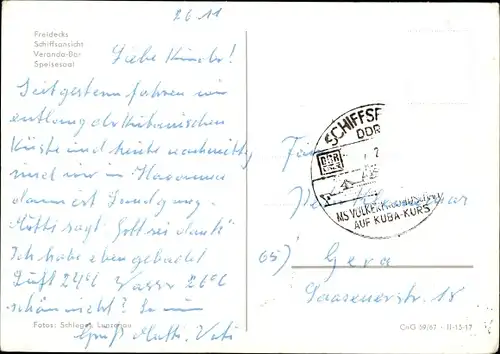 26.11
Freidecks
Schiffsansicht
Veranda-Bar
Speisesaal
Liebe Kinder!
Seit gestern fahren wir
entlang der Kubanischen
Küste und heute nachmittag
sind wir in Havanna
dann ist Landgang.
Mutti sagt "Gott sei dank"
Ich habe eben gebadet
Luft 24°C Wasser 26°C
schön nicht?
Gruß Mutti, Vati
Fotos: Schlegel,
SCHIFFSP
DDR
MS VÖLKERFREUNDSCHAFT
AUF KUBA-KURS
Fam
65) Gera
Saasenerstr. 18
CnG 59/61 - II-15-17